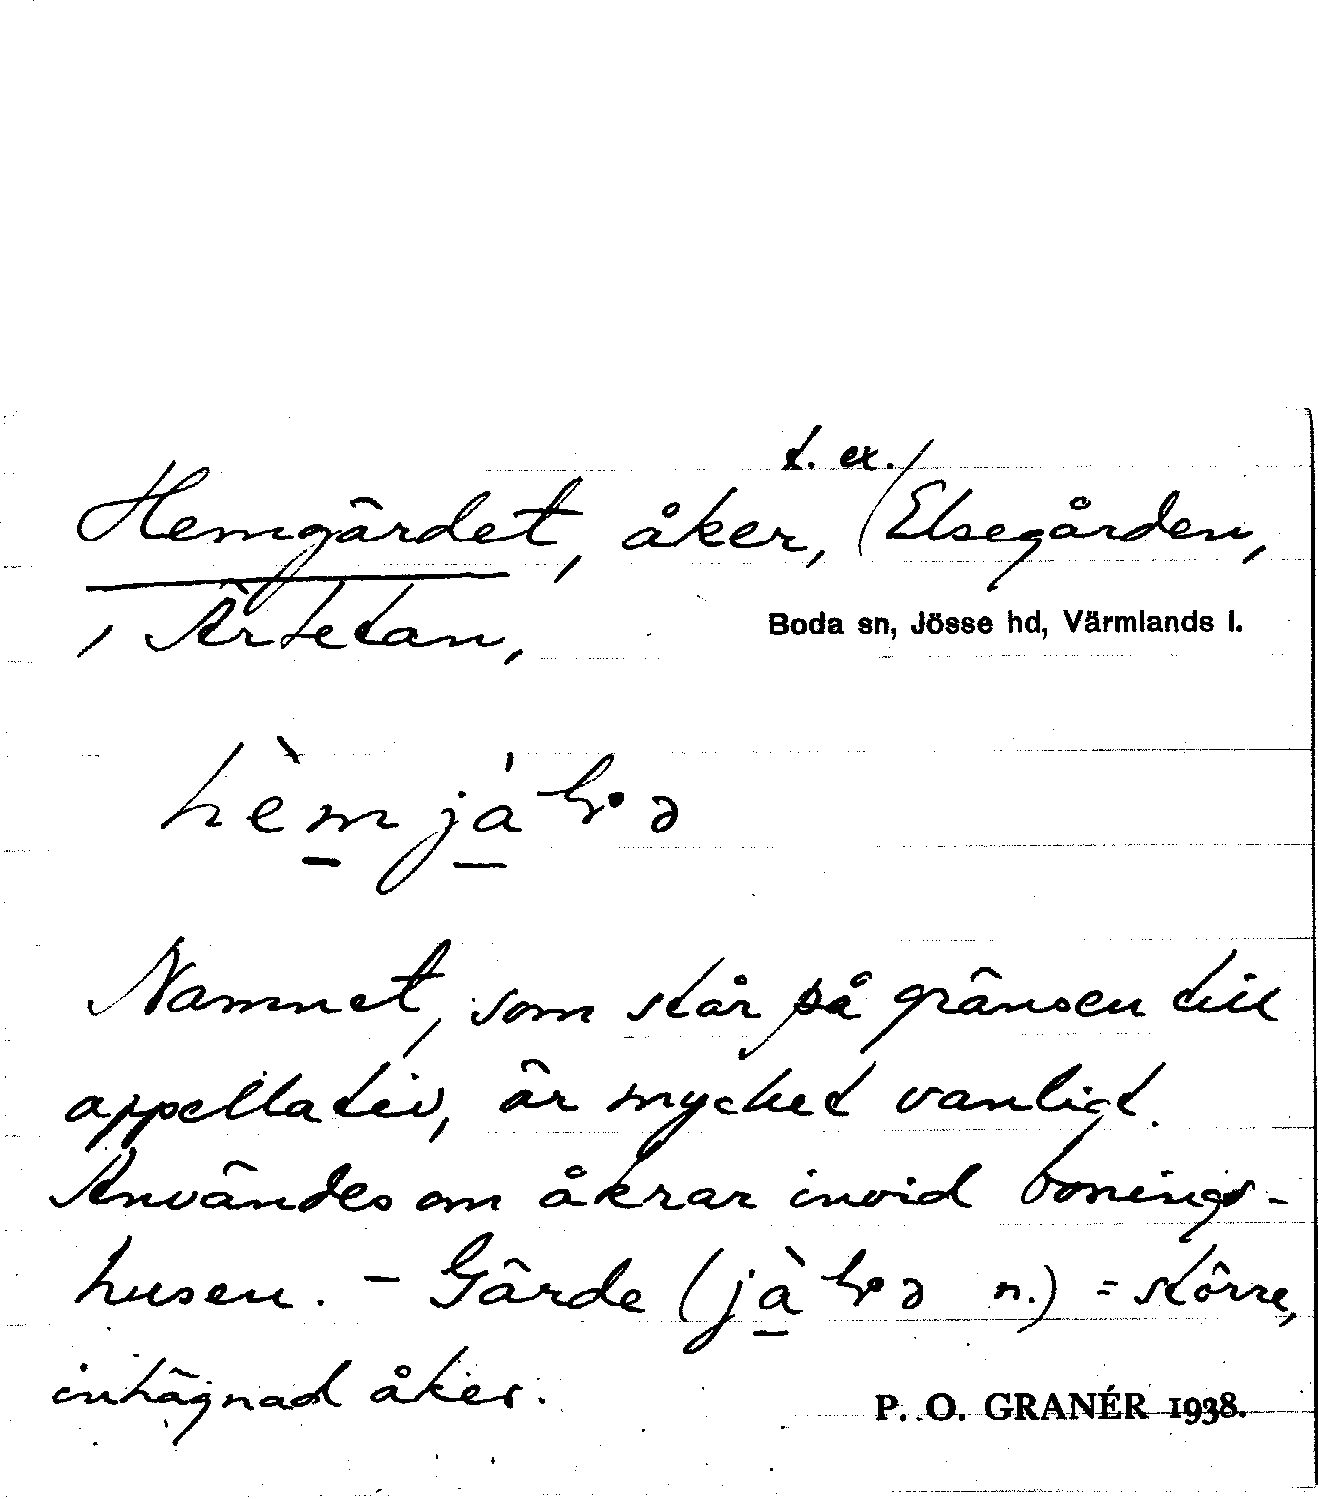 t. ex.
Hemgärdet, åker, (Elsegården,
, Ärtetan,
Boda sn, Jösse hd, Värmlands l.
Namnet, som står på gränsen till
appellativ, är mycket vanligt.
Användes om åkrar invid bonings-
husen. – Gärde ( n.) = större,
inhägnad åker.
P. O. GRANÉR 1938.